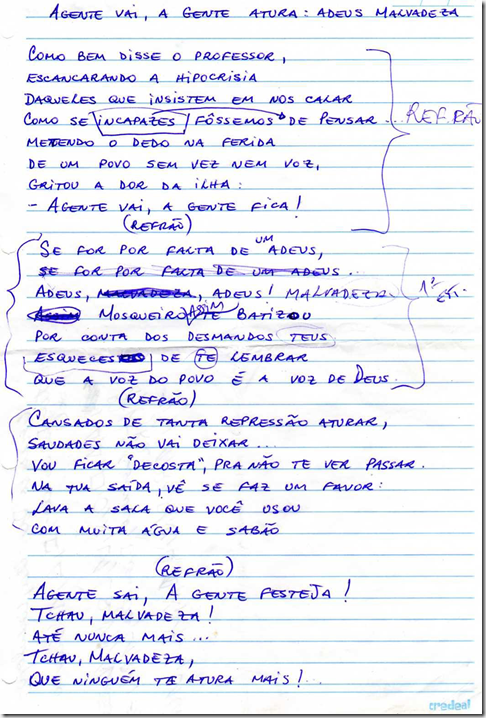 AGENTE VAI, A GENTE ATURA: ADEUS MALVADEZA
COMO BEM DISSE O PROFESSOR,
ESCANCARANDO A HIPOCRISIA
DAQUELES QUE INSISTEM EM NOS CALAR
COMO SE INCAPAZES FÔSSEMOS DE PENSAR... REFRÃO
METENDO O DEDO NA FERIDA
DE UM POVO SEM VEZ NEM VOZ,
GRITOU A DOR DA ILHA:
- AGENTE VAI, A GENTE FICA!
(REFRÃO)
SE FOR POR FALTA DE UM ADEUS,
SE FOR POR FALTA DE UM ADEUS...
ADEUS, MALVADEZA, ADEUS! MALVADEZA. 1ª
MOSQUEIRO ASSIM TE BATIZOU
POR CONTA DOS DESMANDOS TEUS
ESQUECES DE TE LEMBRAR
QUE A VOZ DO POVO É A VOZ DE DEUS.
(REFRÃO)
CANSADOS DE TANTA REPRESSÃO ATURAR,
SAUDADES NÃO VAI DEIXAR...
VOU FICAR "DECOSTA", PRA NÃO TE VER PASSAR.
NA TUA SAÍDA, VÊ SE FAZ UM FAVOR:
LAVA A SALA QUE VOCÊ USOU
COM MUITA ÁGUA E SABÃO
(REFRÃO)
AGENTE SAI, A GENTE FESTEJA!
TCHAU, MALVADEZA!
ATÉ NUNCA MAIS...
TCHAU, MALVADEZA,
QUE NINGUÉM TE ATURA MAIS!...
credeal